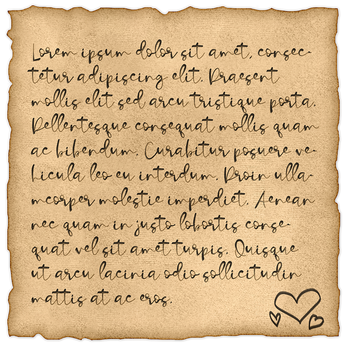 Lorem ipsum dolor sit amet, consec-
tetur adipiscing elit. Praesent
mollis elit sed arcu tristique porta.
Pellentesque consequat mollis quam
ac bibendum. Curabitur posuere ve-
hicula leo eu interdum. Proin ulla-
mcorper molestie imperdiet. Aenean
nec quam in justo lobortis conse-
quat vel sit amet turpis. Quisque
ut arcu lacinia odio sollicitudin
mattis at ac eros.